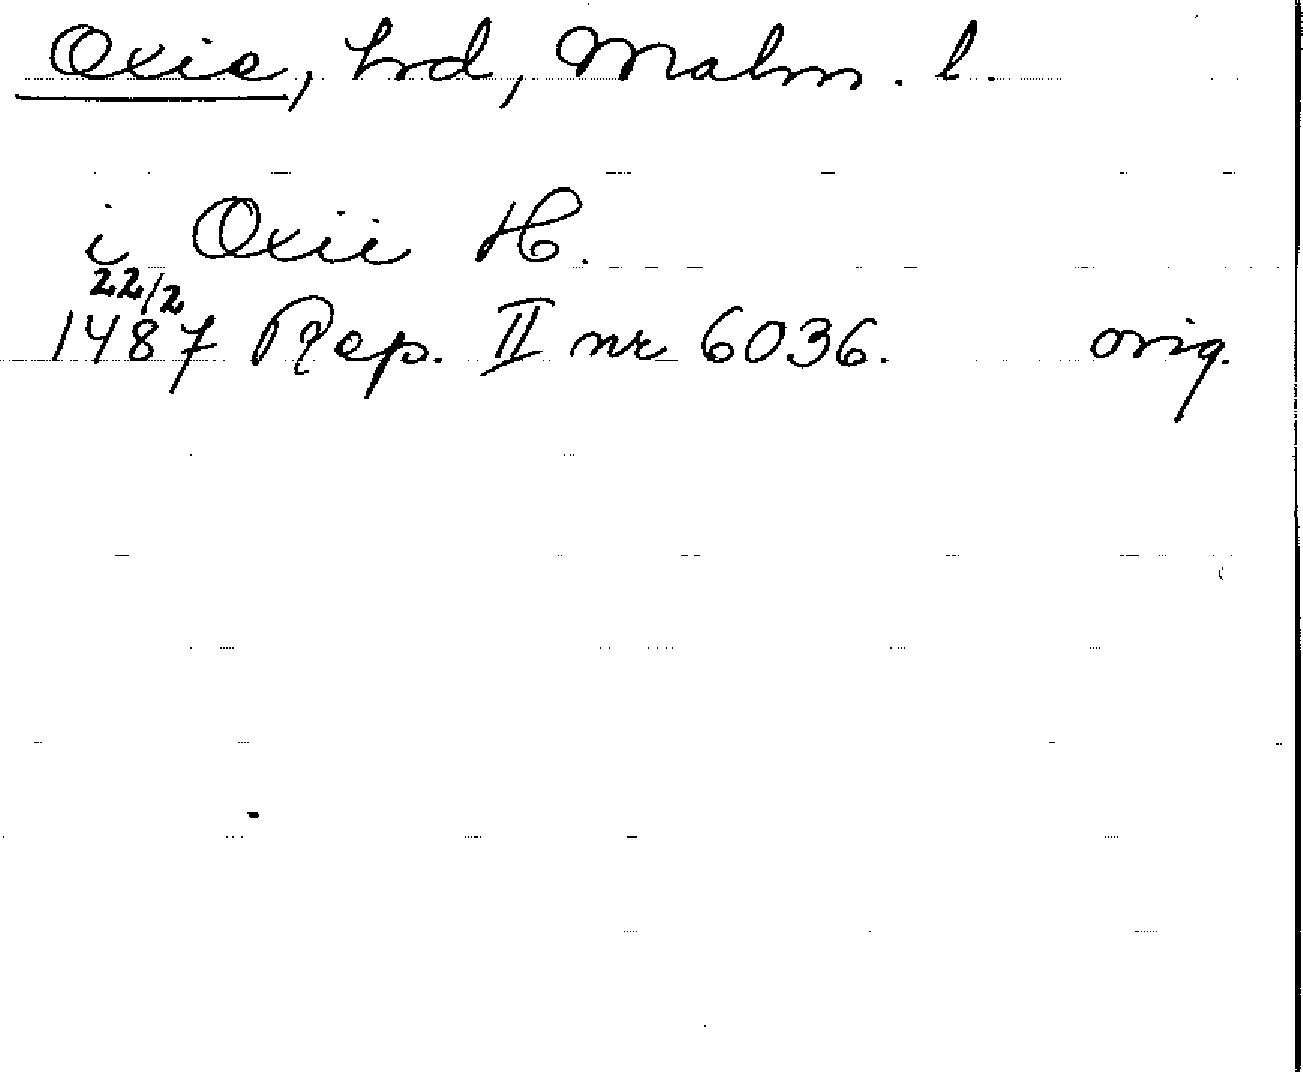 Oxie, hrd, Malm. l.
i Oxii H.
22/2
1487 Rep. II nr 6036. orig.